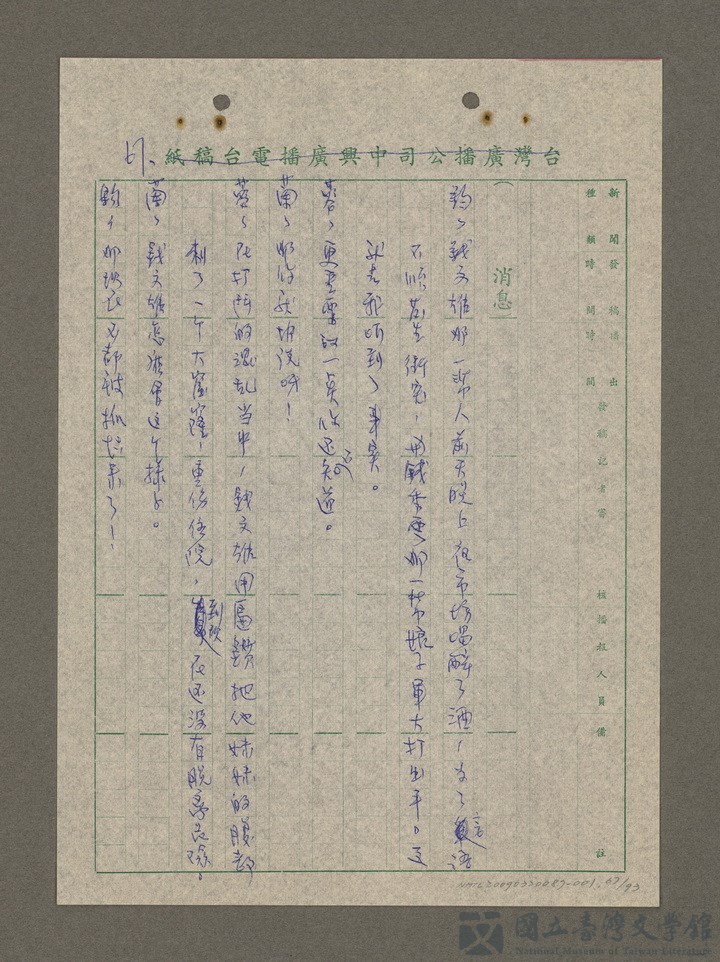 67、
台灣廣播公司中興廣播電台稿紙
新聞種類
發稿時間
播出時間
發稿記者
審核
播報人員
備註
消息
鈞：錢文雄那一幫人前天晚上在市場喝醉了酒，為了言語
不順發生衝突，跟錢秀霞那一幫娘子軍大打出手。又
蓉：更重要的一點你還不知道。
蘭：那你就說呀！
蓉：在打鬥的混亂當中，錢文雄用扁鑽把他妹妹的腹部
刺了一個大窟窿，重傷住院，到現在還沒有脫離危險。
蘭：錢文雄怎麼會這個樣子。
鈞：那現在不都被抓起來了！
NMTL20090330087-001.67/93
國立臺灣文學館
National Museum of Taiwan Literature